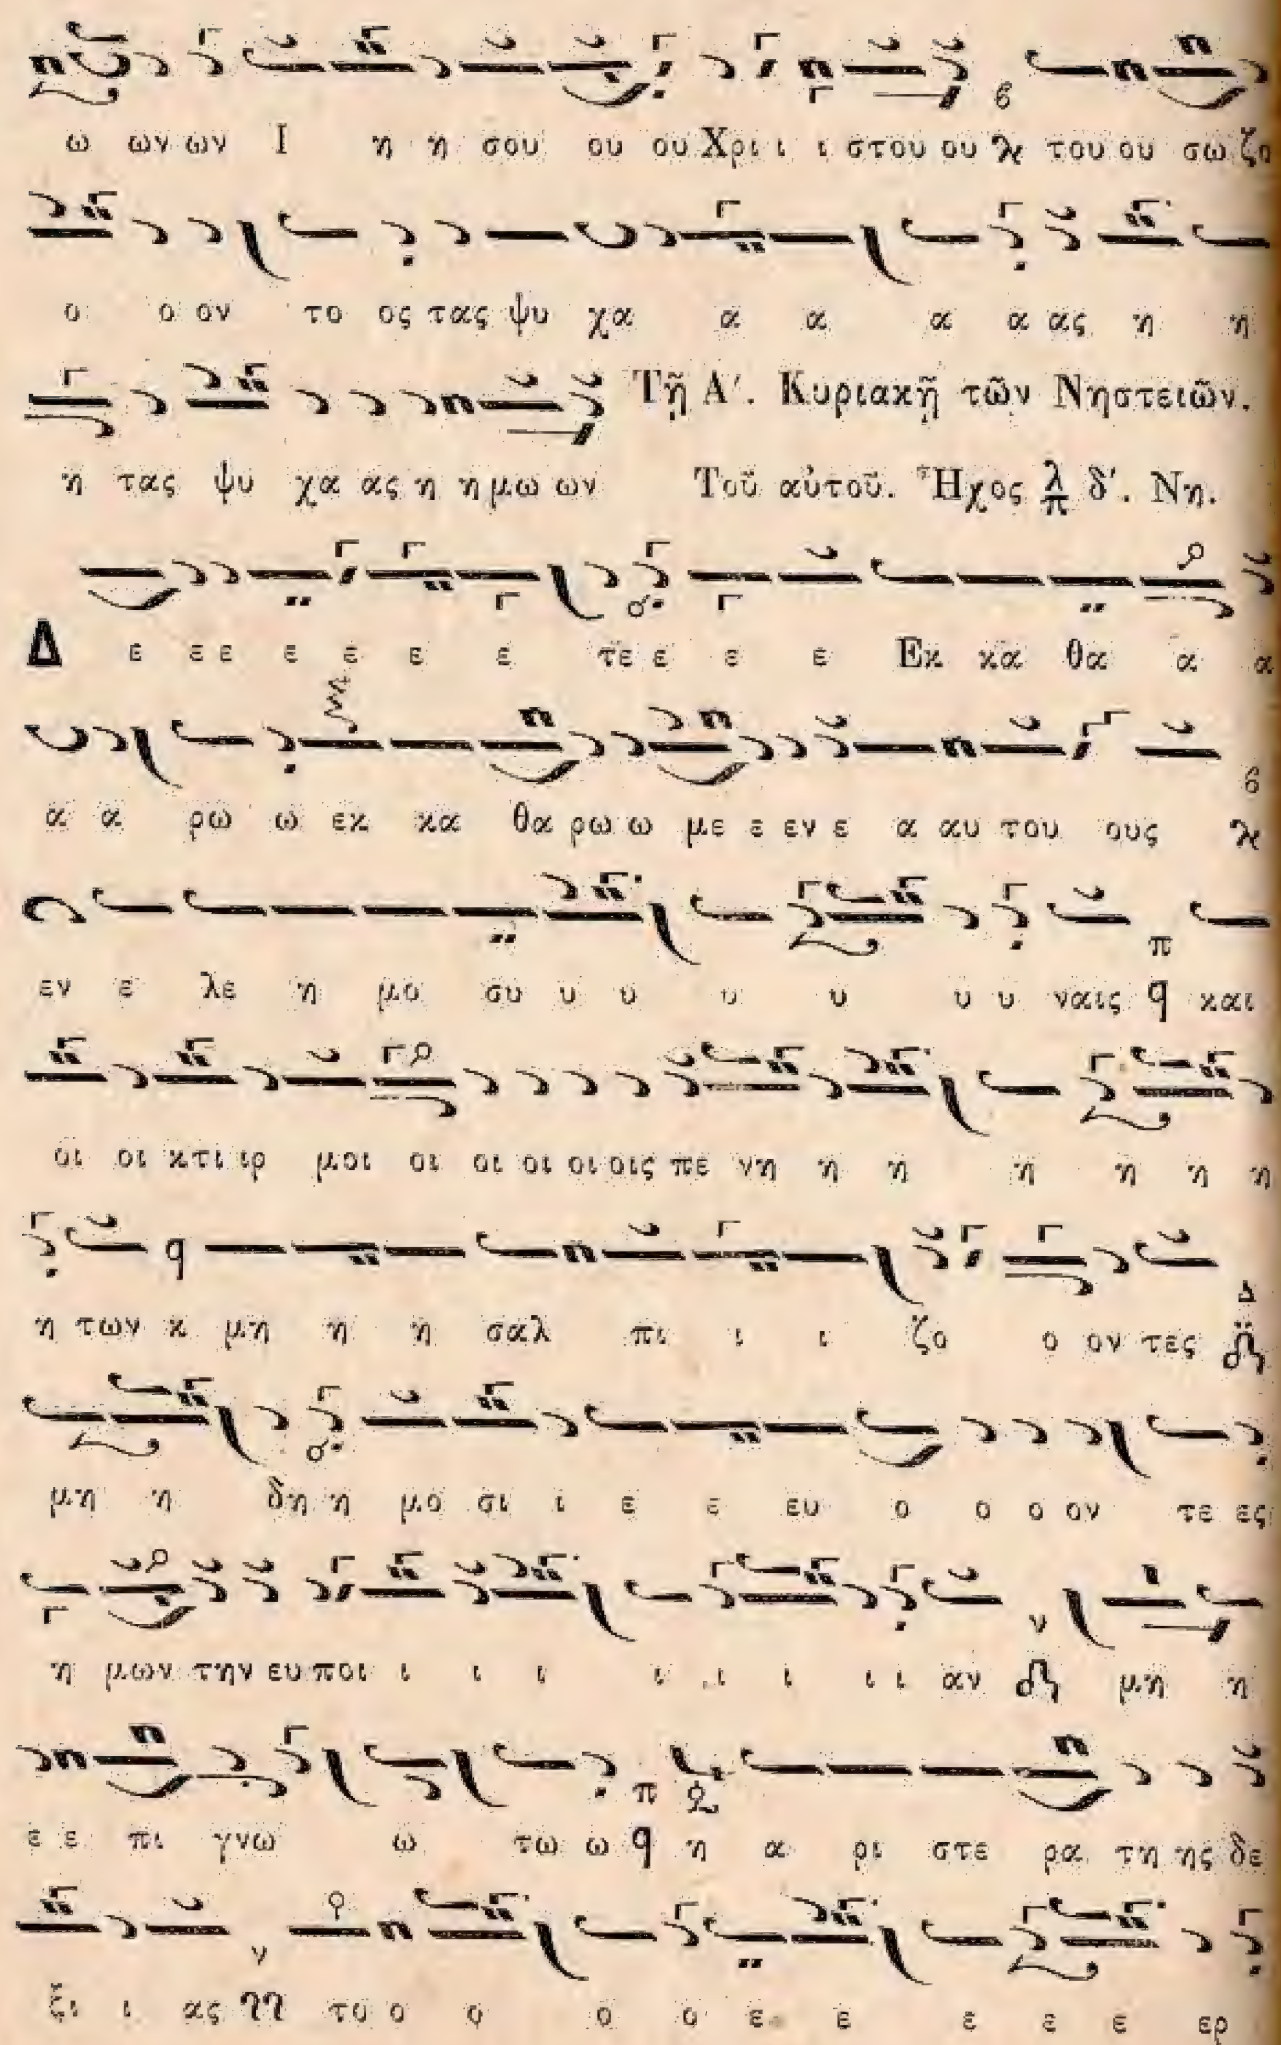 ω ων ων Ι η η σου ου ου Χρι ι ι στου ου ϗ του ου σω ζο
ο ο ον το ος τας ψυ χα α α α α ας η η
η τας ψυ χα ας η η μω ων Τῇ Α΄. Κυριακῇ τῶν Νηστειῶν.
Τοῦ αὐτοῦ. Ἦχος λ/π δ΄. Νη.
Δ ε ε ε ε ε ε ε τε ε ε ε Εκ κα θα α α
α α ρω ω εκ κα θα ρω ω με ε εν ε α αυ του ους ϗ
εν ε λε η μο συ υ υ υ υ υ υ ναις q και
οι οι κτι ιρ μοι οι οι οι οι οις πε νη η η η η η η
η των κ μη η η σαλ πι ι ι ζο ο ον τες
μη η δη η μο σι ι ε ε ευ ο ο ο ον τε ες
η μων την ευ ποι ι ι ι ι ι ι ι ι αν μη η
ε ε πι γνω ω τω ω q η α ρι στε ρα τη ης δε
ξι ι ας το ο ο ο ο ε ε ε ε ε ερ